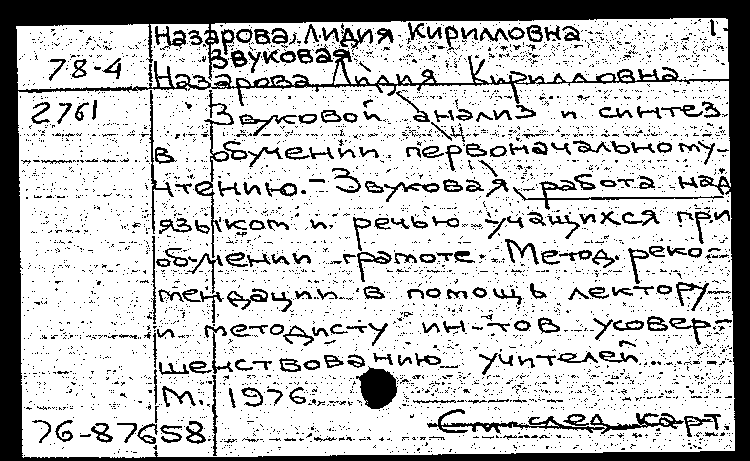 Назарова, Лидия Кирилловна 1-
Звуковая
78-4 Назарова, Лидия Кирилловна.
2761 Звуковой анализ и синтез
в обучении первоначальному
чтению. - Звуковая работа над
языком и речью учащихся при
обучении грамоте. Метод. реко-
мендации в помощь лектору
и методисту ин-тов усовер-
шенствованию учителей.
М. 1976.
76-87658 См. след. карт.